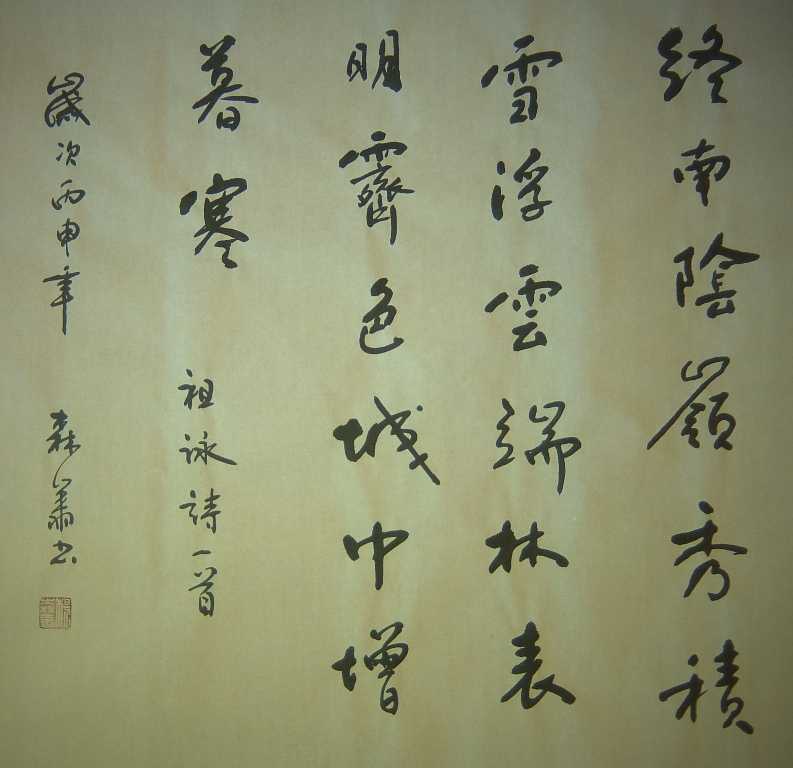 終南陰嶺秀積
雪浮雲端林表
明霽色城中增
暮寒 祖詠詩一首
歲次丙申年 森肅書